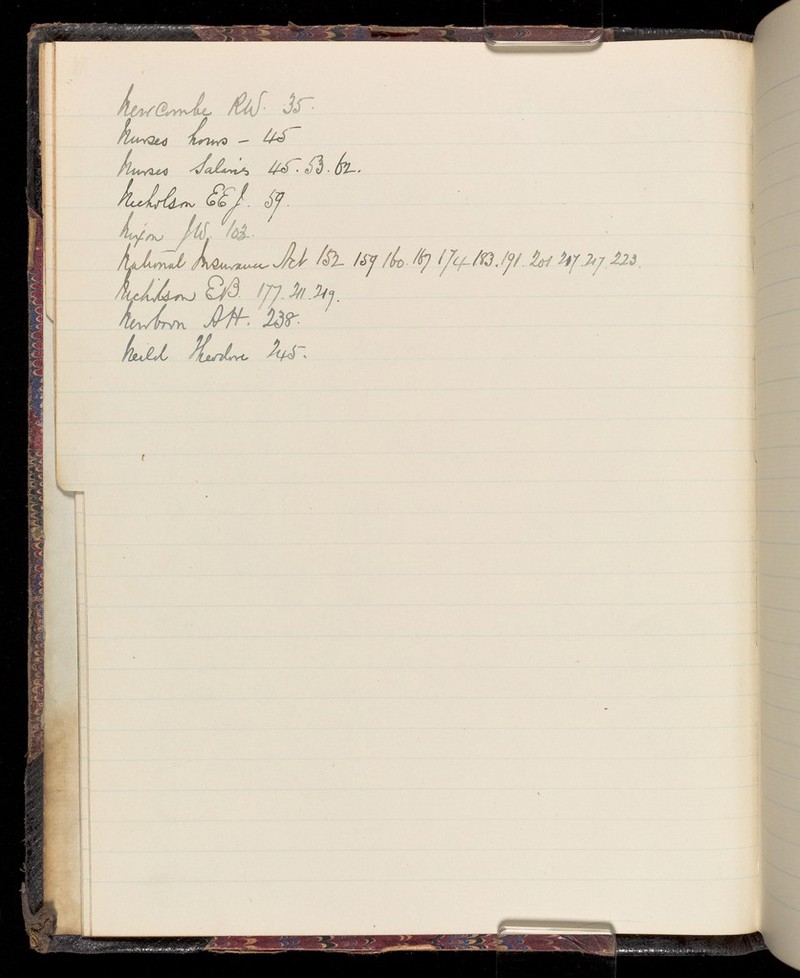 Newcombe RW. 35.
Nurses hours - 45
Nurses Salaries 45. 53. 62.
Nicholson EEJ. 59.
Nixon JW. 102.
National Insurance Act 152 159 160. 167 174 183. 191. 201 207 217. 223.
Nicholson EB. 177. 211. 219.
Newborn AH. 238.
Neild Theodore 245.